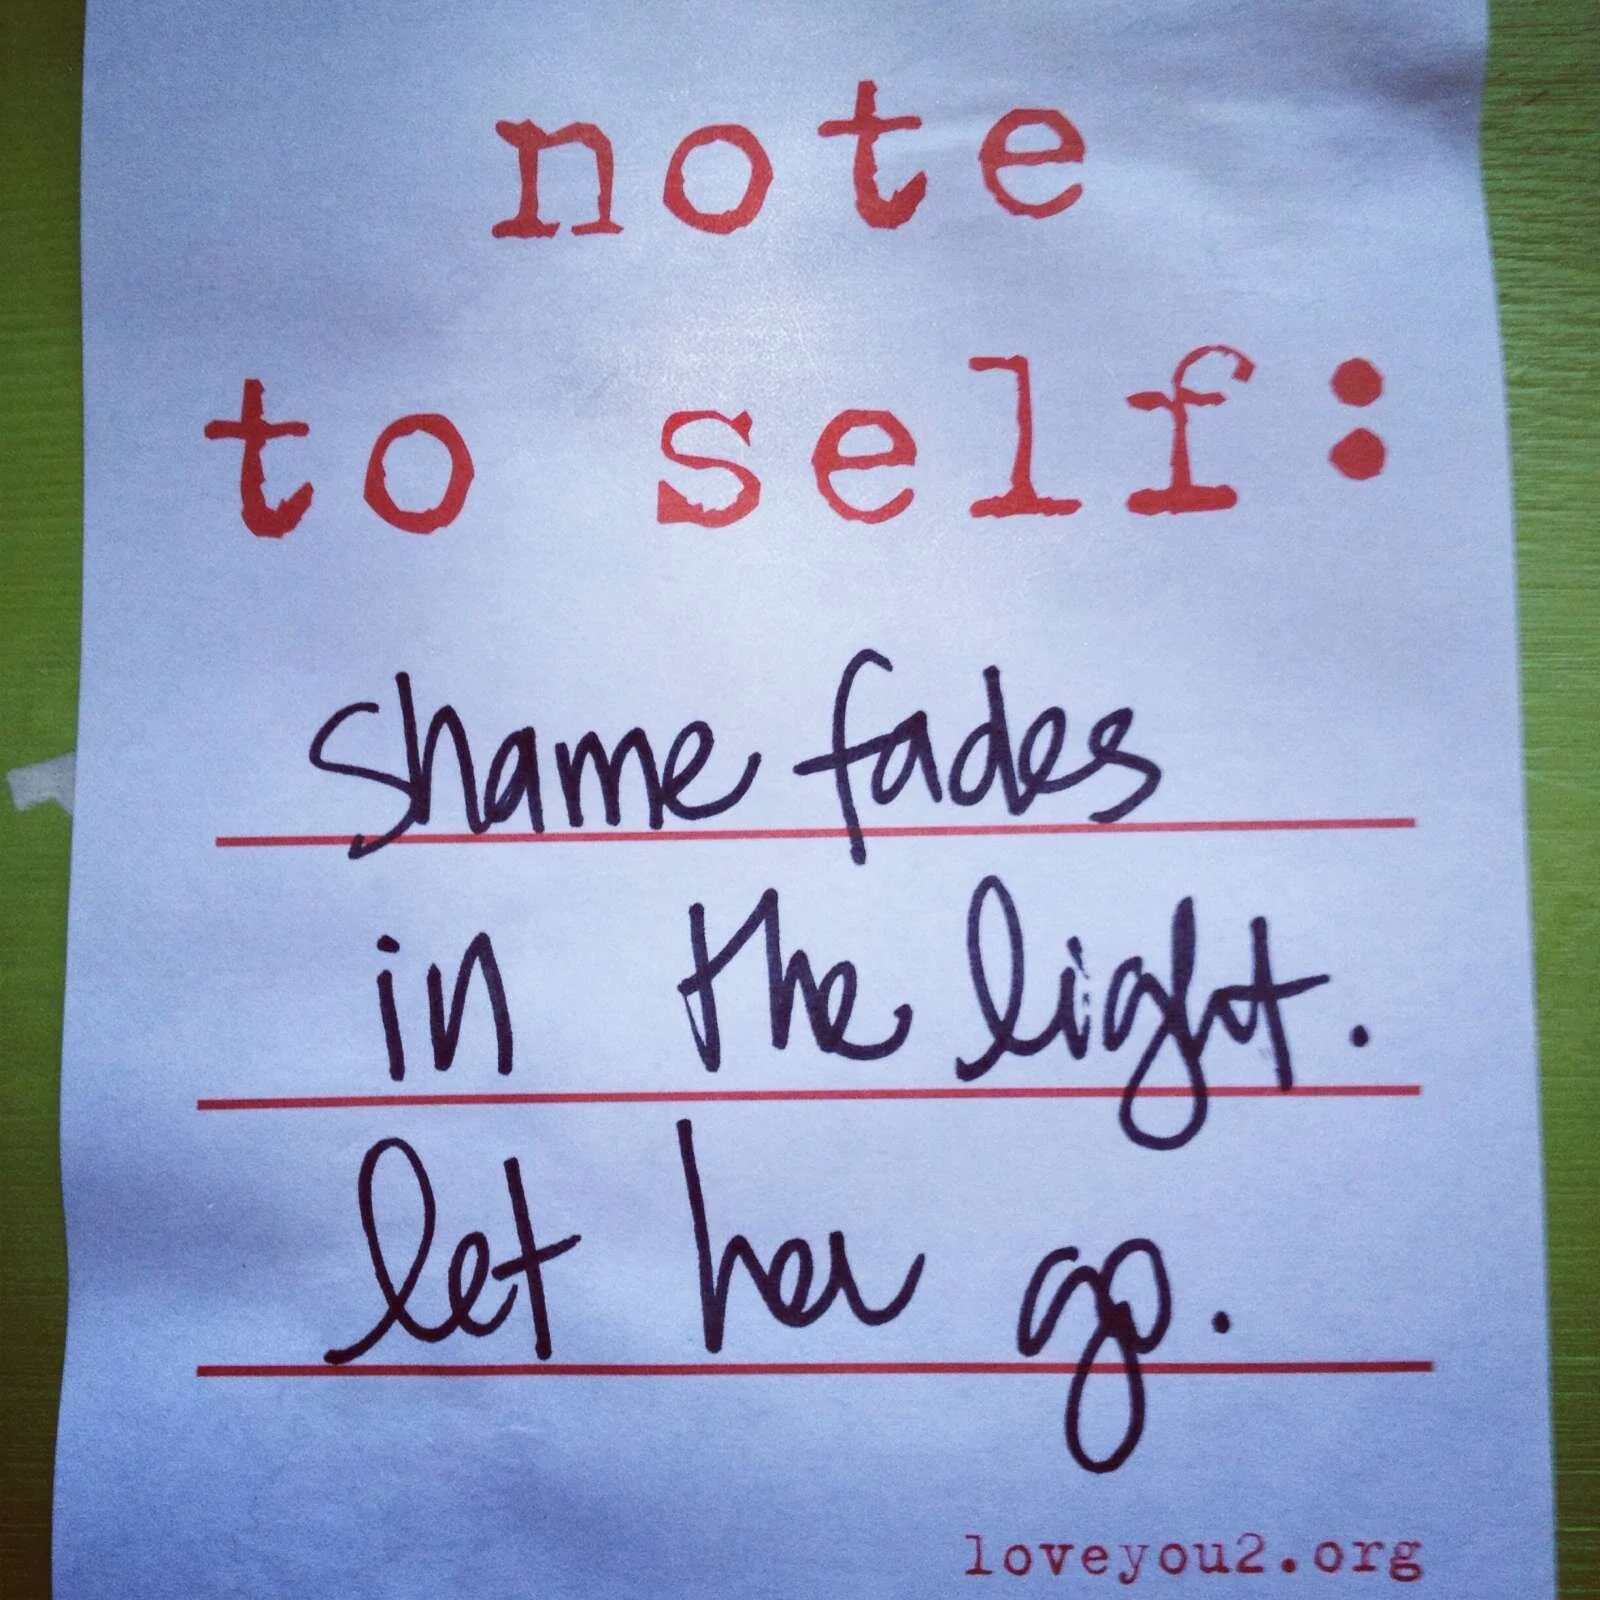 note
to self:
shame fades
in the light.
let her go.
loveyou2.org